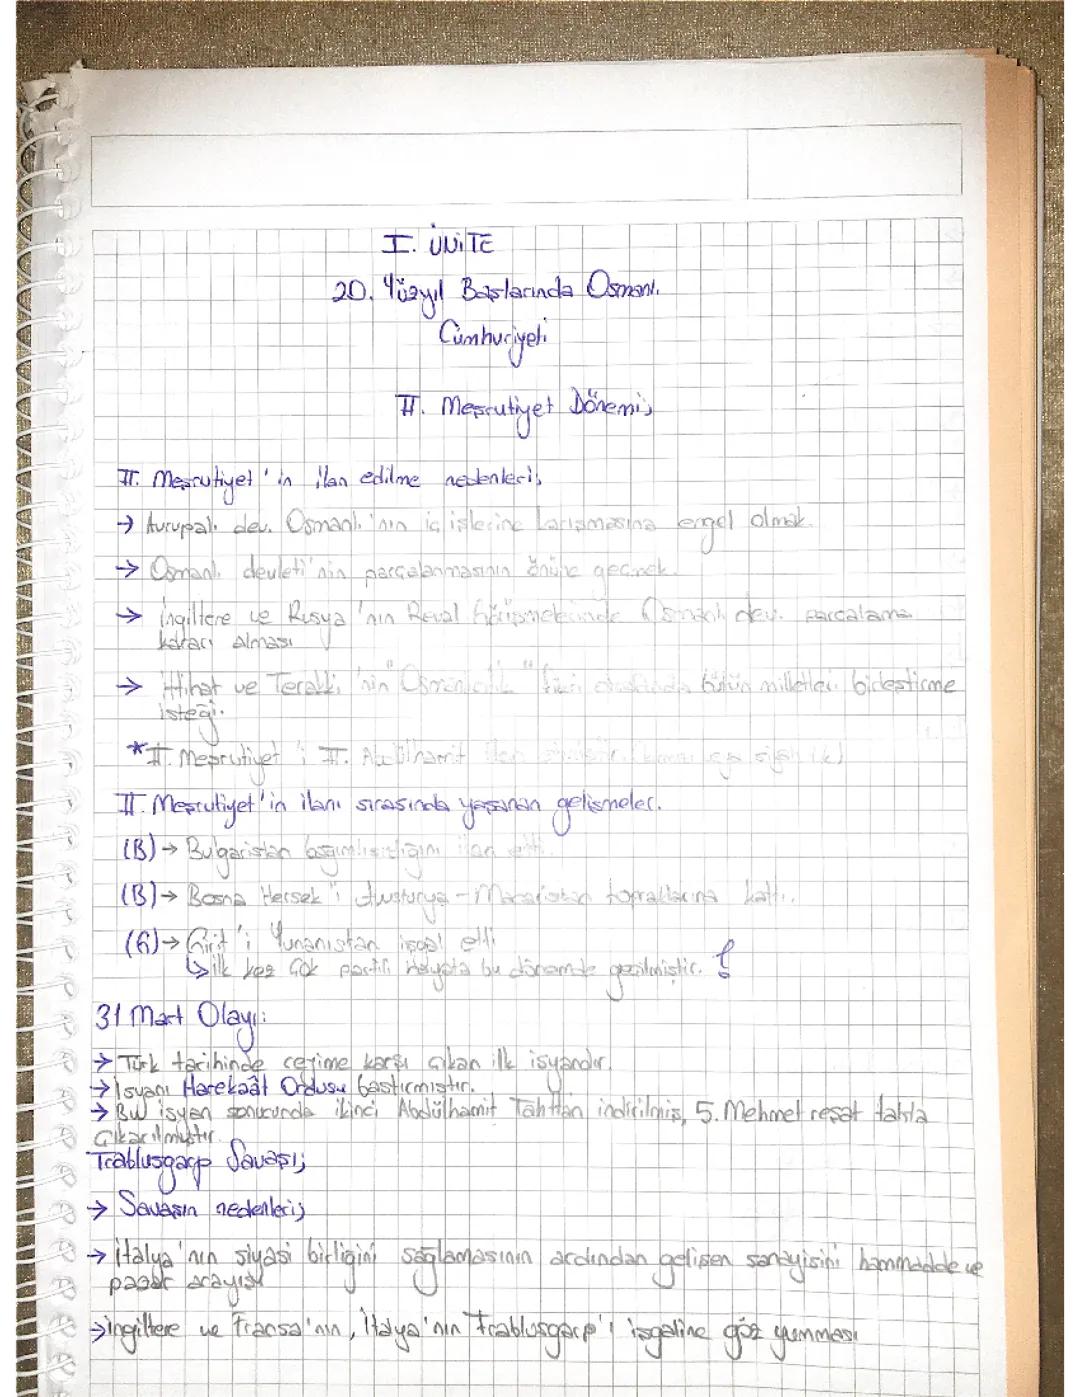 I. ÜNİTE
20. Yüzyıl Başlarında Osmanlı
Cumhuriyeti
II. Meşrutiyet Dönemi;
II. Meşrutiyet'in ilan edilme nedenleri;
→ Avrupalı dev. Osmanlı'nın iç işlerine karışmasına engel olmak.
→ Osmanlı devleti'nin parçalanmasının önüne geçmek.
→ İngiltere ve Rusya'nın Reval Görüşmelerinde Osmanlı dev. parçalama
kararı alması
→ İttihat ve Terakki'nin "Osmanlıcılık" fikri etrafında bütün milletleri birleştirme
isteği.
*II. Meşrutiyet'i II. Abdülhamit ilan
II. Meşrutiyet'in ilanı sırasında yaşanan gelişmeler.
(B) → Bulgaristan bağımsızlığını ilan etti.
(B) → Bosna Hersek'i Avusturya-Macaristan topraklarına kattı.
(G) → Girit'i Yunanistan işgal etti
↳ ilk kez çok partili hayata bu dönemde geçilmiştir. !
31 Mart Olayı:
→ Türk tarihinde rejime karşı çıkan ilk isyandır.
→ İsyanı Harekaât Ordusu bastırmıştır.
→ Bu isyan sonucunda ikinci Abdülhamit Tahttan indirilmiş, 5. Mehmet reşat tahta
çıkarılmıştır.
Trablusgarp Savaşı;
→ Savaşın nedenleri;
→ İtalya'nın siyasi birliğini sağlamasının ardından gelişen sanayisini hammadde ve
pazar arayışı
→ İngiltere ve Fransa'nın, İtalya'nın Trablusgarp'ı işgaline göz yumması